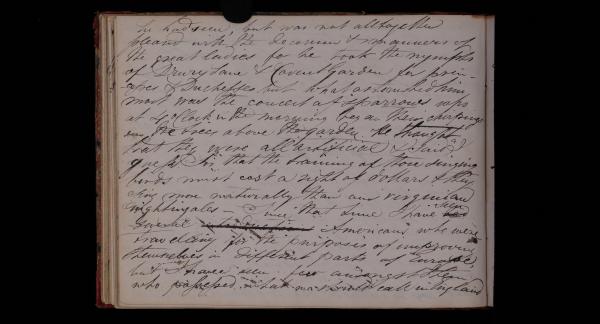 he had seen, but was not alltogether
pleased with the decorum & manners of
the great ladies, for he took the nymphs
of Drury Lane & Covent Garden for prin-
cesses & Duchesses but what astonished him
most was the concert of sparrows who
at 4 o'Clock in the morning began their chirpings
in the trees above the garden. He thought
that they were all artificial & said
guess Sir that the training of those singing
birds must cost a sight of dollars & they
sing more naturally than our virginian
nightingales — Since that time I have seen
several Americans who were
travelling for the purposes of improving
themselves in different parts of Europe
but I have seen few amongst them
who possessed what we should call in England